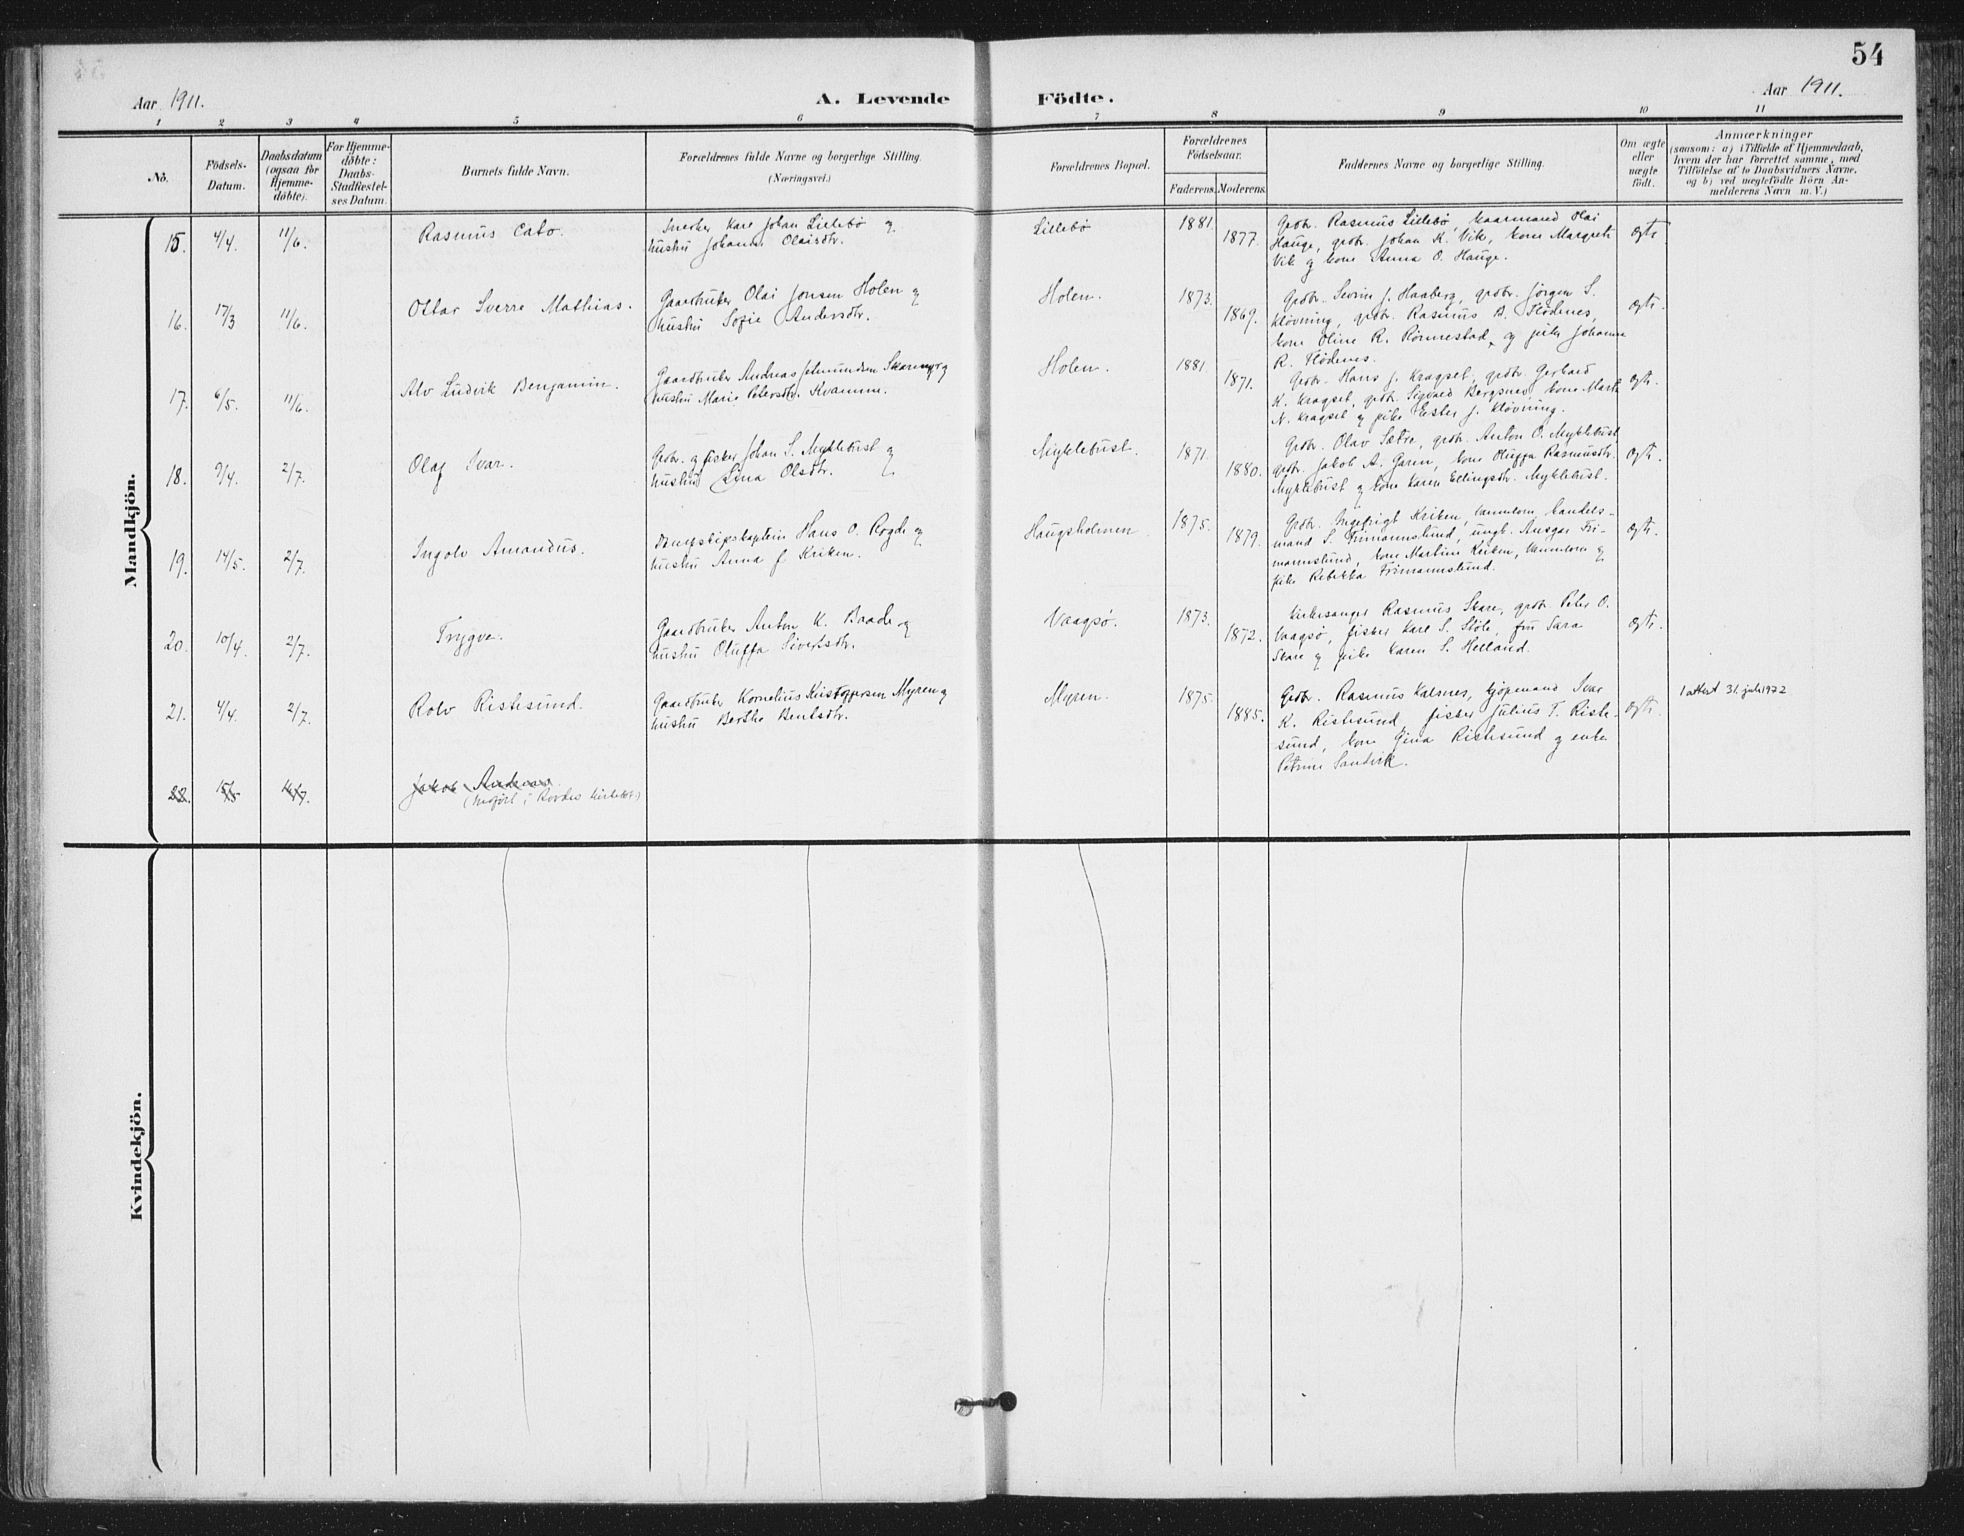 54
Aar 1911.
A. Levende Födte.
Aar 1911.
1 2 3 4 5 6 7 8 9 10 11
No.
Födsels-
Datum.
Daabsdatum
(ogsaa for
Hjemme-
döbte).
For Hjemme-
döbte:
Daabs-
Stadfæstel-
ses Datum.
Barnets fulde Navn.
Forældrenes fulde Navne og borgerlige Stilling.
(Næringsvei.)
Forældrenes Bopæl.
Forældrenes
Födselsaar.
Faderens. Moderens.
Faddernes Navne og borgerlige Stilling.
Om ægte
eller
uægte
födt.
Anmærkninger
(saasom: a) i Tilfælde af Hjemmedaab,
hvem der har forrettet samme, med
Tilföielse af to Daabsvidners Navne,
og b) ved uægtefödte Börn An-
melderens Navn m. V.)
Mandkjön.
15. 4/4. 11/6. Rasmus Cato.
Snedker Kare Johan Lillebø og
hustru Johanne Olaisdtr.
Lillebø 1881. 1877.
Grdbr. Rasmus Lillebø, kaarmand Olai
Hauge, grdbr. Johan K. Vik, kone Margrete
Vik og kone Anna O. Hauge.
ægte
16. 17/3 11/6. Ottar Sverre Mathias.
Gaardbruker Olai Jonsen Holen og
hustru Sofie Andersdtr.
Holen. 1873. 1869.
Grdbr. Severin J. Haaberg, grdbr. Jörgen S.
Kløvning, grdbr. Rasmus B. Flödenes,
kone Oline R. Rönnestad, og pike Johanne
R. Flödenes.
ægte.
17. 6/5. 11/6. Alv Ludvik Benjamin.
Gaardbruker Andreas Jetmundsen Skaremyr og
hustru Marie Petersdtr. Kvamme.
Holen. 1881. 1871.
Grdbr. Hans J. Kragset, grdbr. Gerhard
K. Kragset, grdbr. Sigvald Bergsnev, kone Marte
N. Kragset og pike Ester J. Kløvning.
ægte.
18. 9/4. 2/7. Olaf Ivar.
Grdbr. og fisker Johan S. Myklebust og
hustru Lina Olsdtr.
Myklebust. 1871. 1880.
Grdbr. Olav Sætre, grdbr. Anton O. Myklebust,
grdbr. Jakob A. Garen, kone Oluffa Rasmusdtr.
Myklebust og kone Karen Ellingsdtr. Myklebust.
ægte.
19. 14/5. 2/7. Ingolv Amandus.
Dampskipskaptein Hans O. Rogde og
hustru Anna f Kriken.
Haugsholmen. 1875. 1879.
Grdbr. Ingefrigt Kriken, Vannelven, handels-
mand S. Frimannslund, ungk. Ansgar Fri-
mannslund, kone Martine Kriken, Vannelven og
pike Rebekka Frimannslund.
ægte.
20. 10/4. 2/7. Trygve.
Gaardbruker Anton K. Braade og
hustru Oluffa Sivertsdtr.
Vaagsø. 1873. 1872.
Kirkesanger Rasmus Skare, grdbr. Peter O.
Vaagsø, fisker Karl S. Støle, fru Sara
Skare og pike Karen S. Helland.
ægte.
21. 4/4. 2/7. Rolv Ristesund.
Gaardbruker Kornelius Kristoffersen Myren og
hustru Berthe Bentsdtr.
Myren. 1875. 1885.
Grdbr. Rasmus Kalsnes, kjøpmand Ivar
K. Ristesund, fisker Julius T. Riste-
sund, kone Gina Ristesund og enke
Petrine Sandvik.
ægte.
1 attest 31. juli 1972
22. 15/5 16/7. Jakob Andreas
(Indført i Rovdes kirkebok)
Kvindekjön.